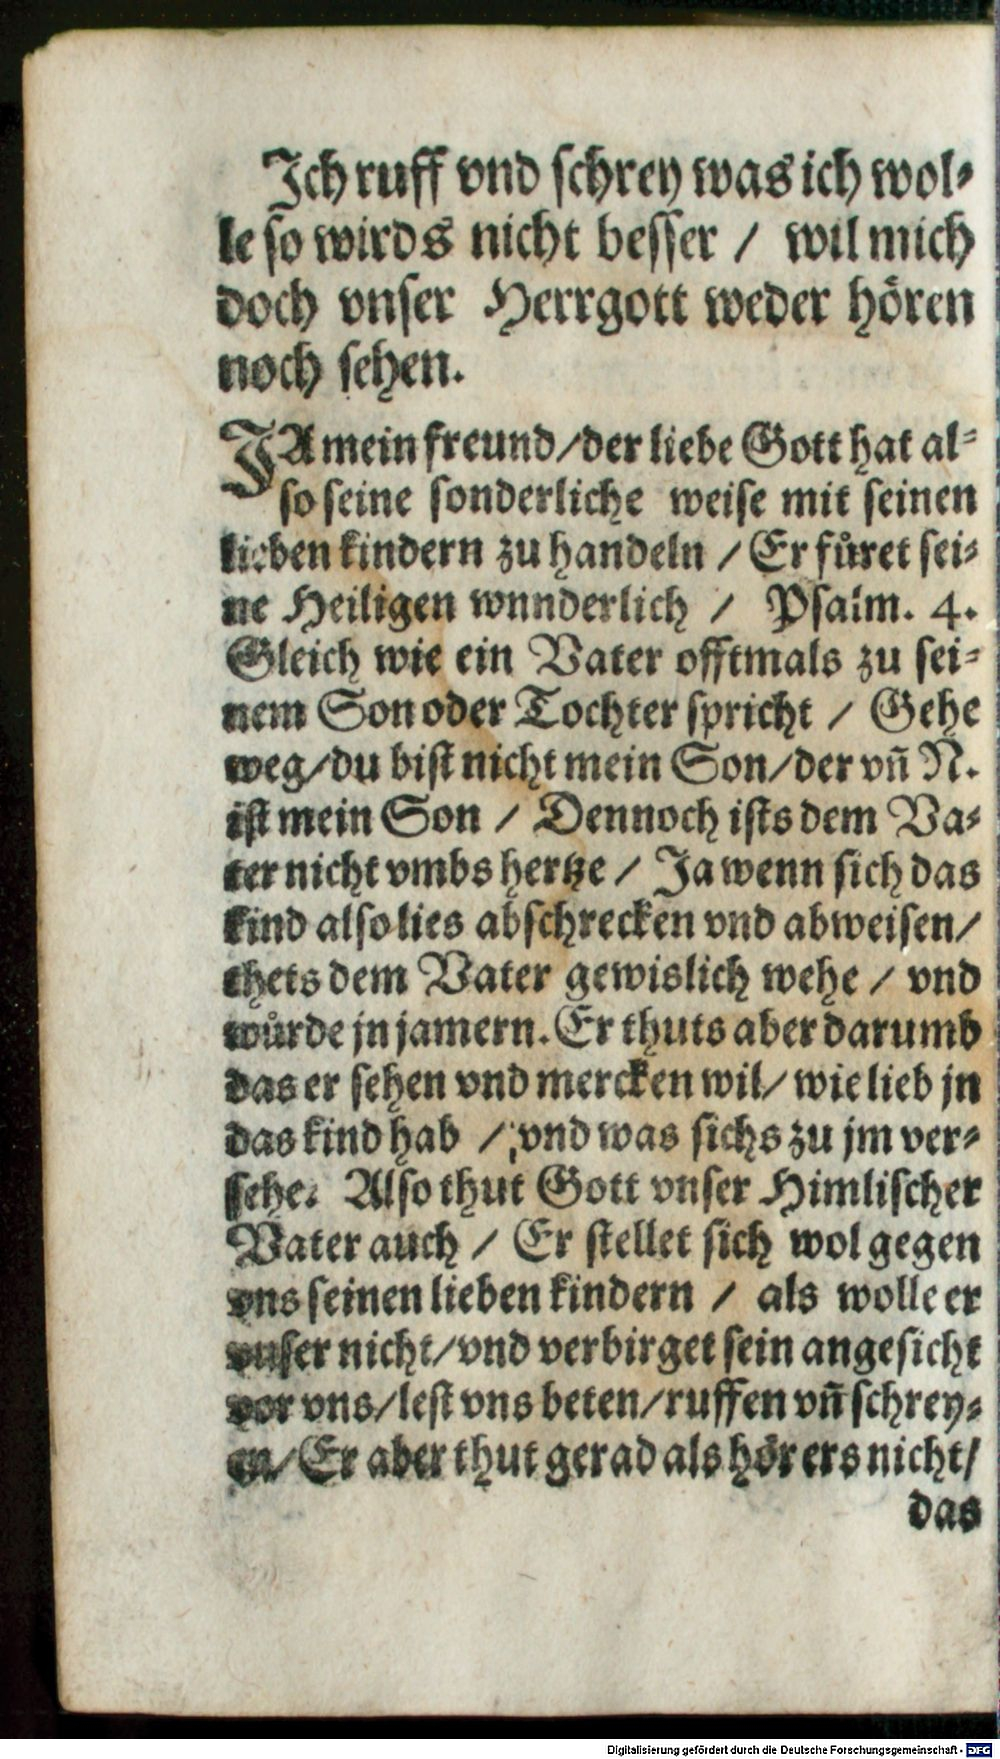 Ich ruff vnd schrey was ich wol⸗
le so wirds nicht besser / wil mich
doch vnser Herrgott weder hören
noch sehen.
JA mein freund/der liebe Gott hat al⸗
so seine sonderliche weise mit seinen
lieben kindern zu handeln / Er fuͤret sei⸗
ne Heiligen wnnderlich / Psalm. 4.
Gleich wie ein Vater offtmals zu sei⸗
nem Son oder Tochter spricht / Gehe
weg/du bist nicht mein Son/der vñ N.
ist mein Son / Dennoch ists dem Va⸗
ter nicht vmbs hertze / Ja wenn sich das
kind also lies abschrecken vnd abweisen/
thets dem Vater gewislich wehe / vnd
wuͤrde jn jamern. Er thuts aber darumb
das er sehen vnd mercken wil/ wie lieb jn
das kind hab / vnd was sichs zu jm ver⸗
sehe. Also thut Gott vnser Himlischer
Vater auch / Er stellet sich wol gegen
vns seinen lieben kindern / als wolle er
vnser nicht/vnd verbirget sein angesicht
vor vns/lest vns beten/ruffen vñ schrey⸗
en/Er aber thut gerad als hör ers nicht/
das
Digitalisierung gefördert durch die Deutsche Forschungsgemeinschaft - DFG